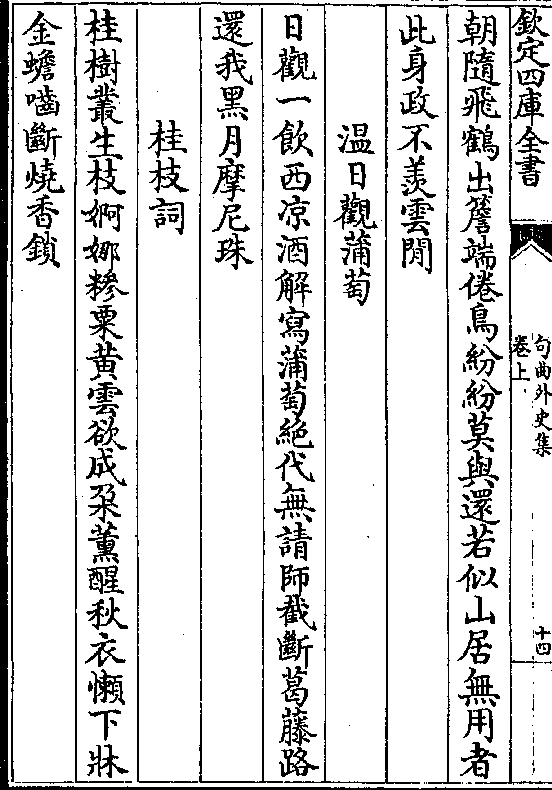 欽定四庫全書
句曲外史集
卷上
十四
朝隨飛鶴出簷端倦鳥紛紛莫與還若似山居無用者
此身政不羨雲閒
温日觀蒲萄
日觀一飲西凉酒解寫蒲萄絶代無請師截斷葛藤路
還我黑月摩尼珠
桂枝詞
桂樹叢生枝婀娜糝粟黄雲欲成朶薰醒秋衣懶下牀
金蟾嚙斷燒香鎖